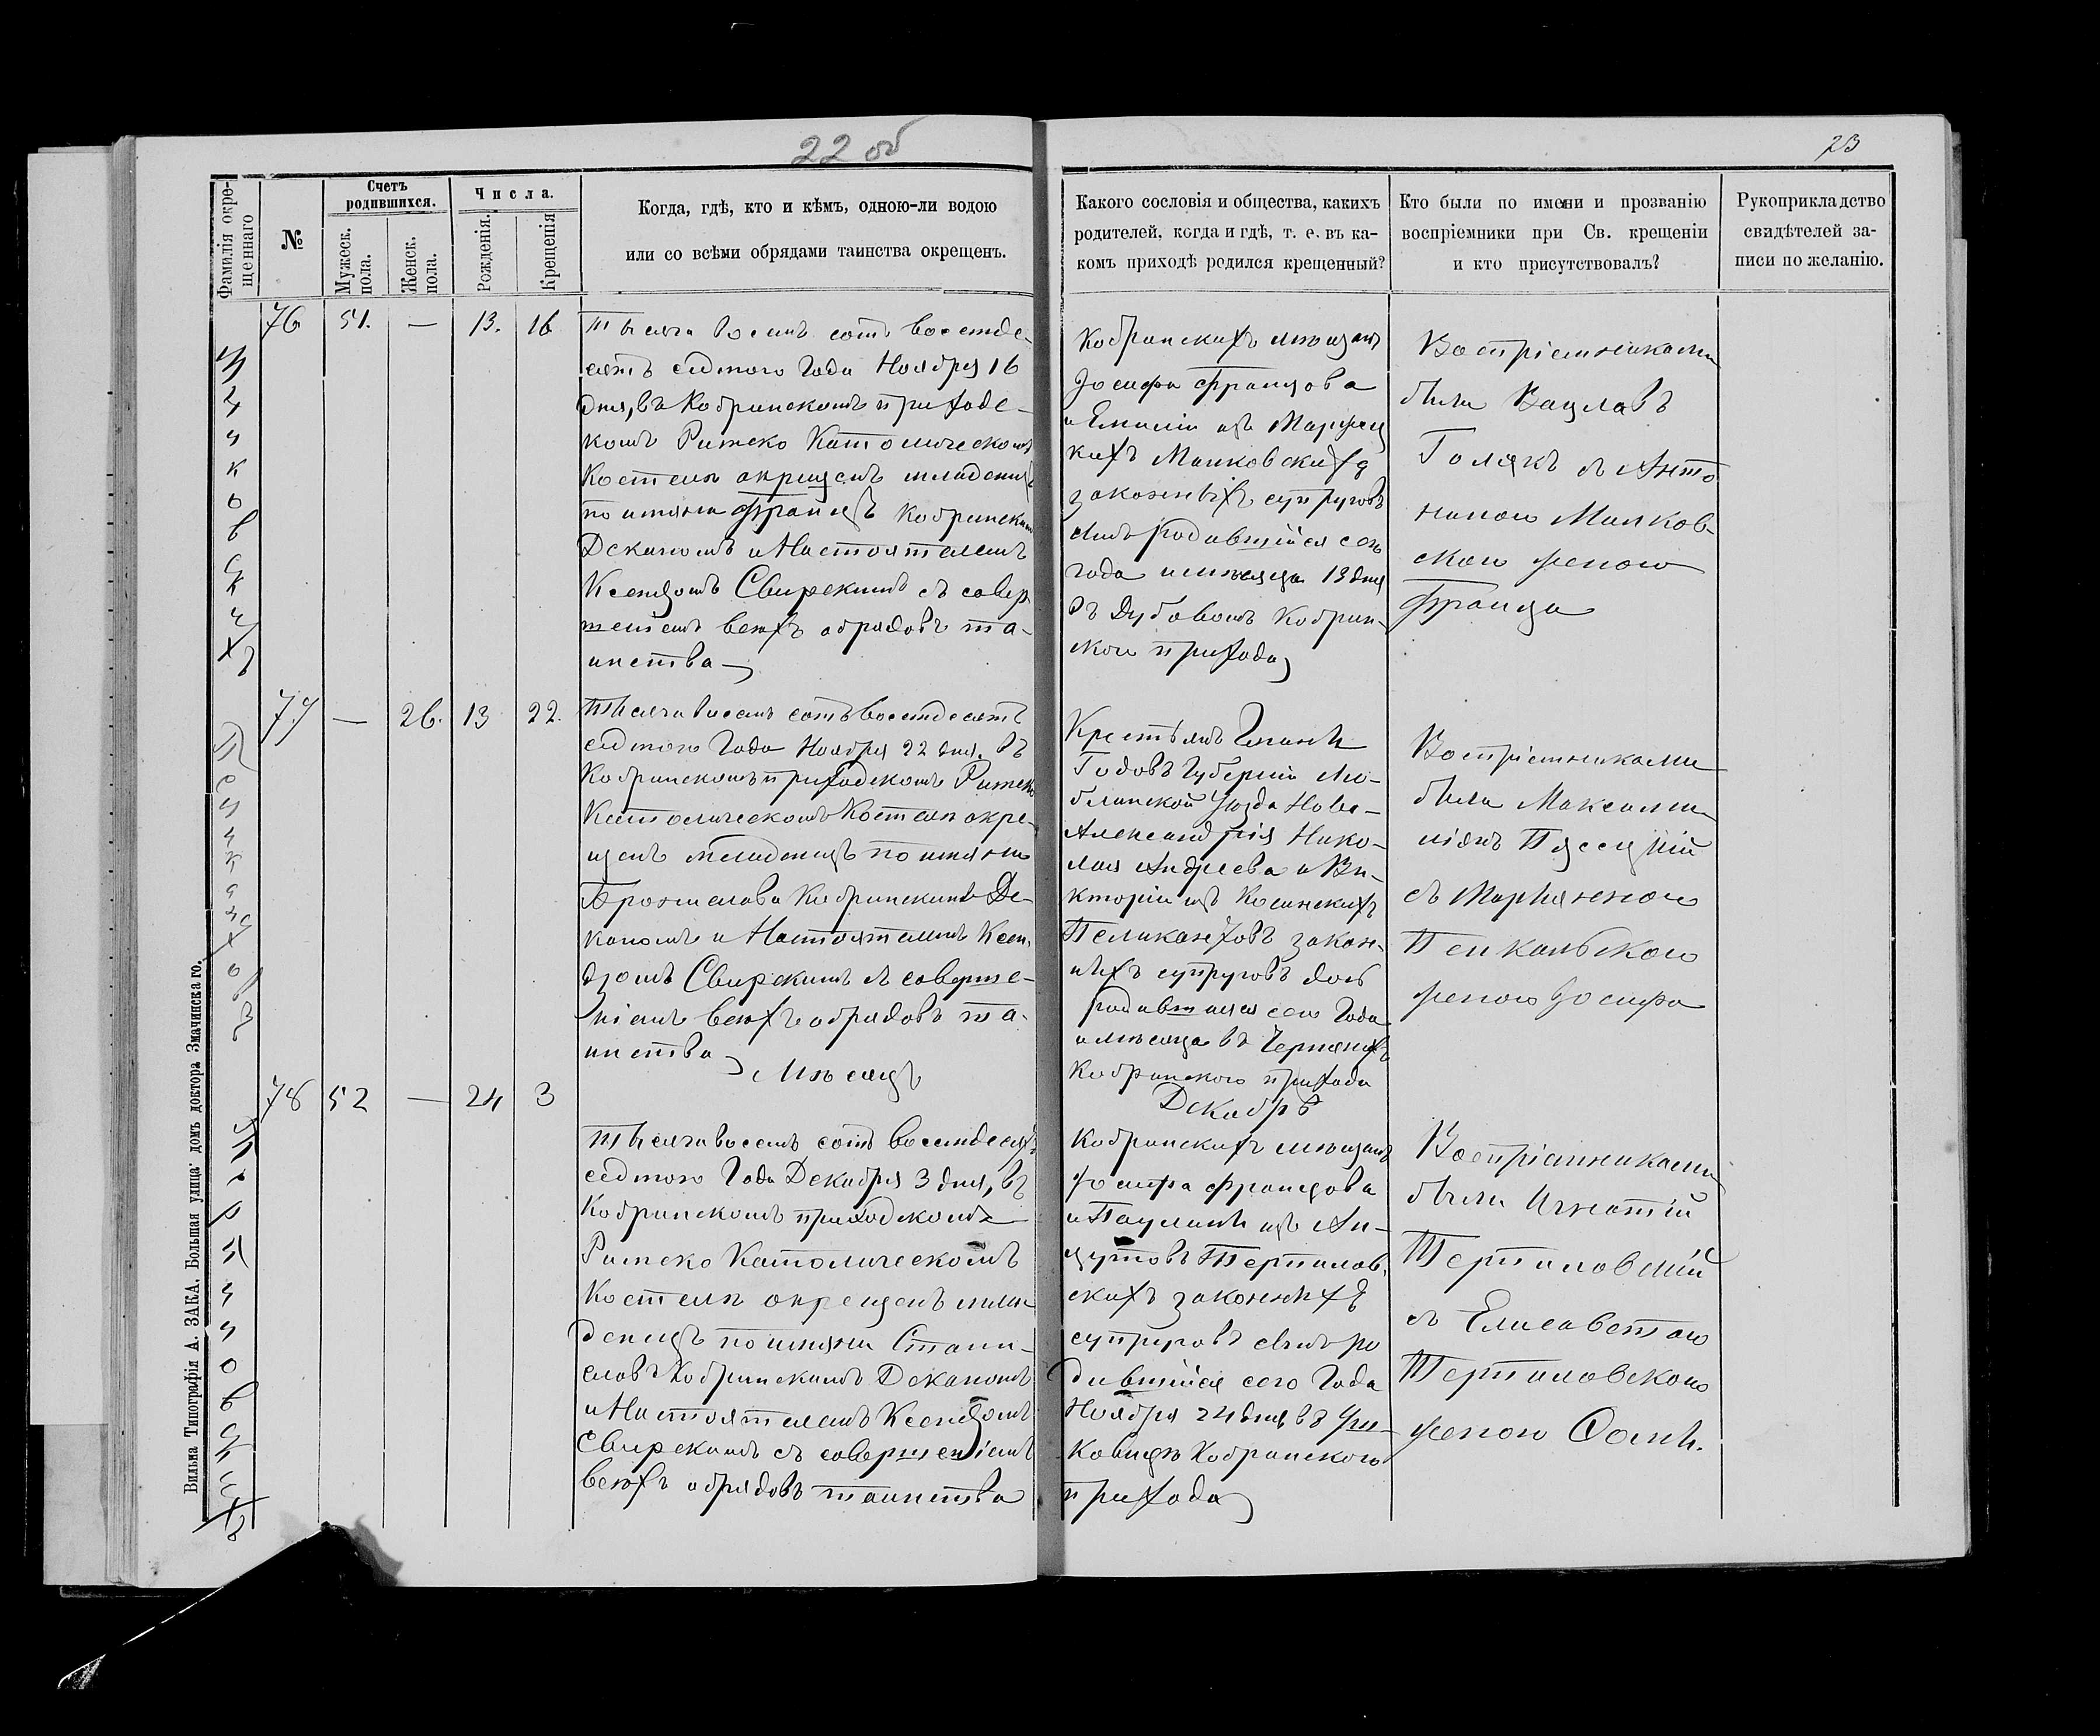 22 об
23
Фамилія окре-
щеннаго
№
Счетъ
родившихся.
Мужеск.
пола.
Женск.
пола.
Числа.
Рожденія.
Крещенія
Когда, гдѣ, кто и кѣмъ, одною-ли водою
или со всѣми обрядами таинства окрещенъ.
Какого сословія и общества, какихъ
родителей, когда и гдѣ, т. е. въ ка-
комъ приходѣ родился крещенный?
Кто были по имени и прозванію
воспріемники при Св. крещеніи
и кто присутствовалъ?
Рукоприкладство
свидѣтелей за-
писи по желанію.
76 51. — 13. 16
Тысяча восемъ сотъ восемде-
сятъ седмого Года Ноября 16
дня, въ Кобринскомъ приходс-
комъ Римско Католическомъ
Костелѣ окрещенъ младенецъ
по имяни Францъ Кобринскимъ
Деканомъ и Настоятелемъ
Ксендзомъ Свирскимъ съ совер
шеніемъ всѣхъ обрядовъ та-
инства
Кобринскихъ мѣщанъ
Іосифа Францова
и Емиліи изъ
кихъ Маиковскихъ
законныхъ супруговъ
сынъ родившійся сего
года и мѣсяца 13 дня
въ Дубовомъ Кобрин-
ского прихода
Воспріемниками
были Вацлавъ
Голякъ съ Анто
ниною Маиков-
скою женою
Франца
77 — 26. 13 22.
Тысяча восемъ сотъ восемдесятъ
седмого Года Ноября 22 дня, въ
Кобринскомъ приходскомъ Римско
Католическомъ Костелѣ окре-
щенъ младенецъ по имяни
Бронислава Кобринскимъ Де-
каномъ и Настоятелемъ Ксен-
дзомъ Свирскимъ съ соверше-
ніемъ всѣхъ обрядовъ та-
инства
Крестьянъ Гмины
Годовъ Губерніи Лю-
блинской Уѣзда Ново-
Александрія Нико-
лая Андреева и Ви-
кторіи изъ Косинскихъ
Пеликантовъ закон-
ныхъ супруговъ дочь
родившаяся сего Года
и мѣсяца въ
Кобринского прихода
Воспріемниками
были Максими
ліянъ Пясецкій
съ Маріянною
Пенкальскою
женою Іосифа
Мѣсяцъ Декабрь
78 52 — 24 3
Тысяча восемъ сотъ восемдесятъ
седмого Года Декабря 3 дня, въ
Кобринскомъ приходскомъ
Римско Католическомъ
Костелѣ окрещенъ мла
денецъ по имяни Стани-
славъ Кобринскимъ Деканомъ
и Настоятелемъ Ксендзомъ
Свирскимъ съ совершеніемъ
всѣхъ обрядовъ таинства
Кобринскихъ мѣщанъ
Іосифа Францова
и Паулины изъ Ан-
цутовъ Терпилов-
скихъ законныхъ
супруговъ сынъ ро
дившійся сего Года
Ноября 24 дня въ
Кобринского
прихода
Воспріемниками
были Игнатій
Терпиловскій
съ Елисаветою
Терпиловскою
женою
Вильна Типографія А. ЗАКА. Большая улица, домъ доктора Змачинскаго.